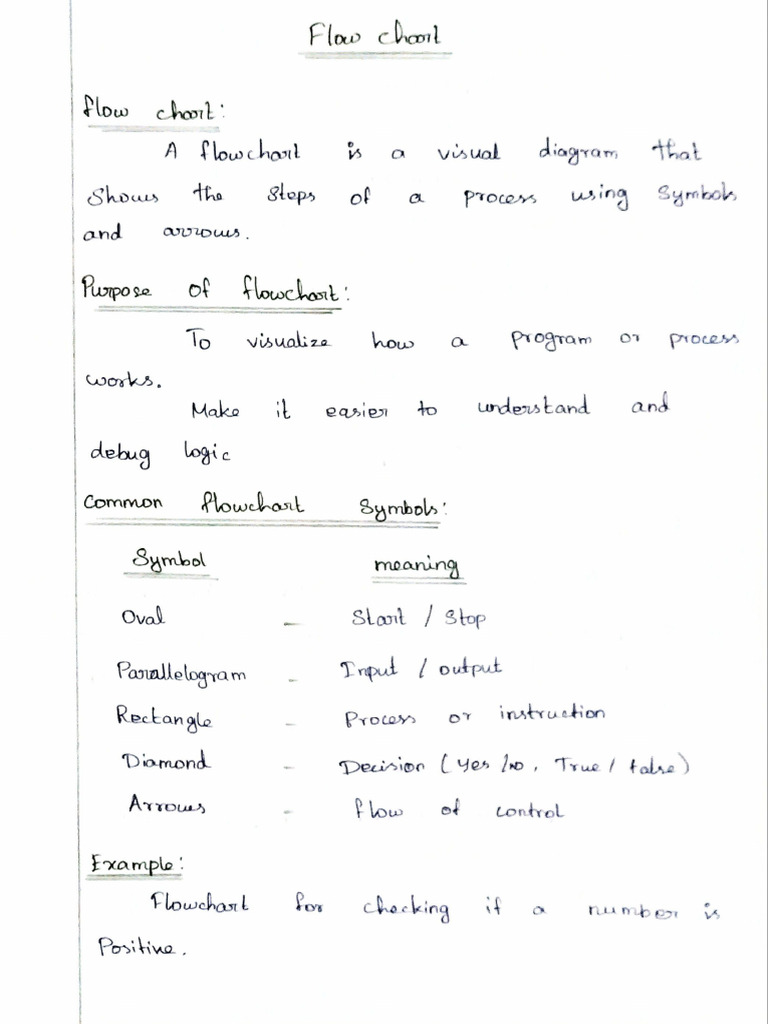 Flow chart
Flow chart:
A flowchart is a visual diagram that
Shows the steps of a process using symbols
and arrows.
Purpose of flowchart:
To visualize how a program or process
works.
Make it easier to understand and
debug logic
Common flowchart Symbols:
Symbol meaning
Oval - Start / Stop
Parallelogram - Input / output
Rectangle - Process or instruction
Diamond - Decision (Yes / no, True / false)
Arrows - flow of control
Example:
Flowchart for checking if a number is
Positive.